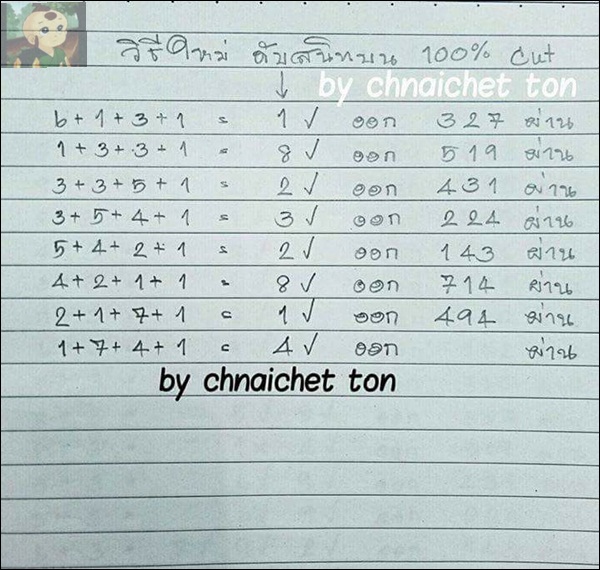 วิธีใหม่ ดับสนิทบน 100% cut
↓
by chnaichet ton
6+1+3+1 = 1 ✓ ออก 327 ผ่าน
1+3+3+1 = 8 ✓ ออก 519 ผ่าน
3+3+5+1 = 2 ✓ ออก 431 ผ่าน
3+5+4+1 = 3 ✓ ออก 224 ผ่าน
5+4+2+1 = 2 ✓ ออก 143 ผ่าน
4+2+1+1 = 8 ✓ ออก 714 ผ่าน
2+1+7+1 = 1 ✓ ออก 494 ผ่าน
1+7+4+1 = 4 ✓ ออก ผ่าน
by chnaichet ton